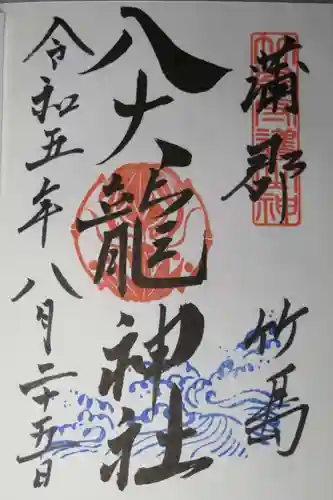 蒲郡
竹島
八大龍神社
令和五年八月二十五日